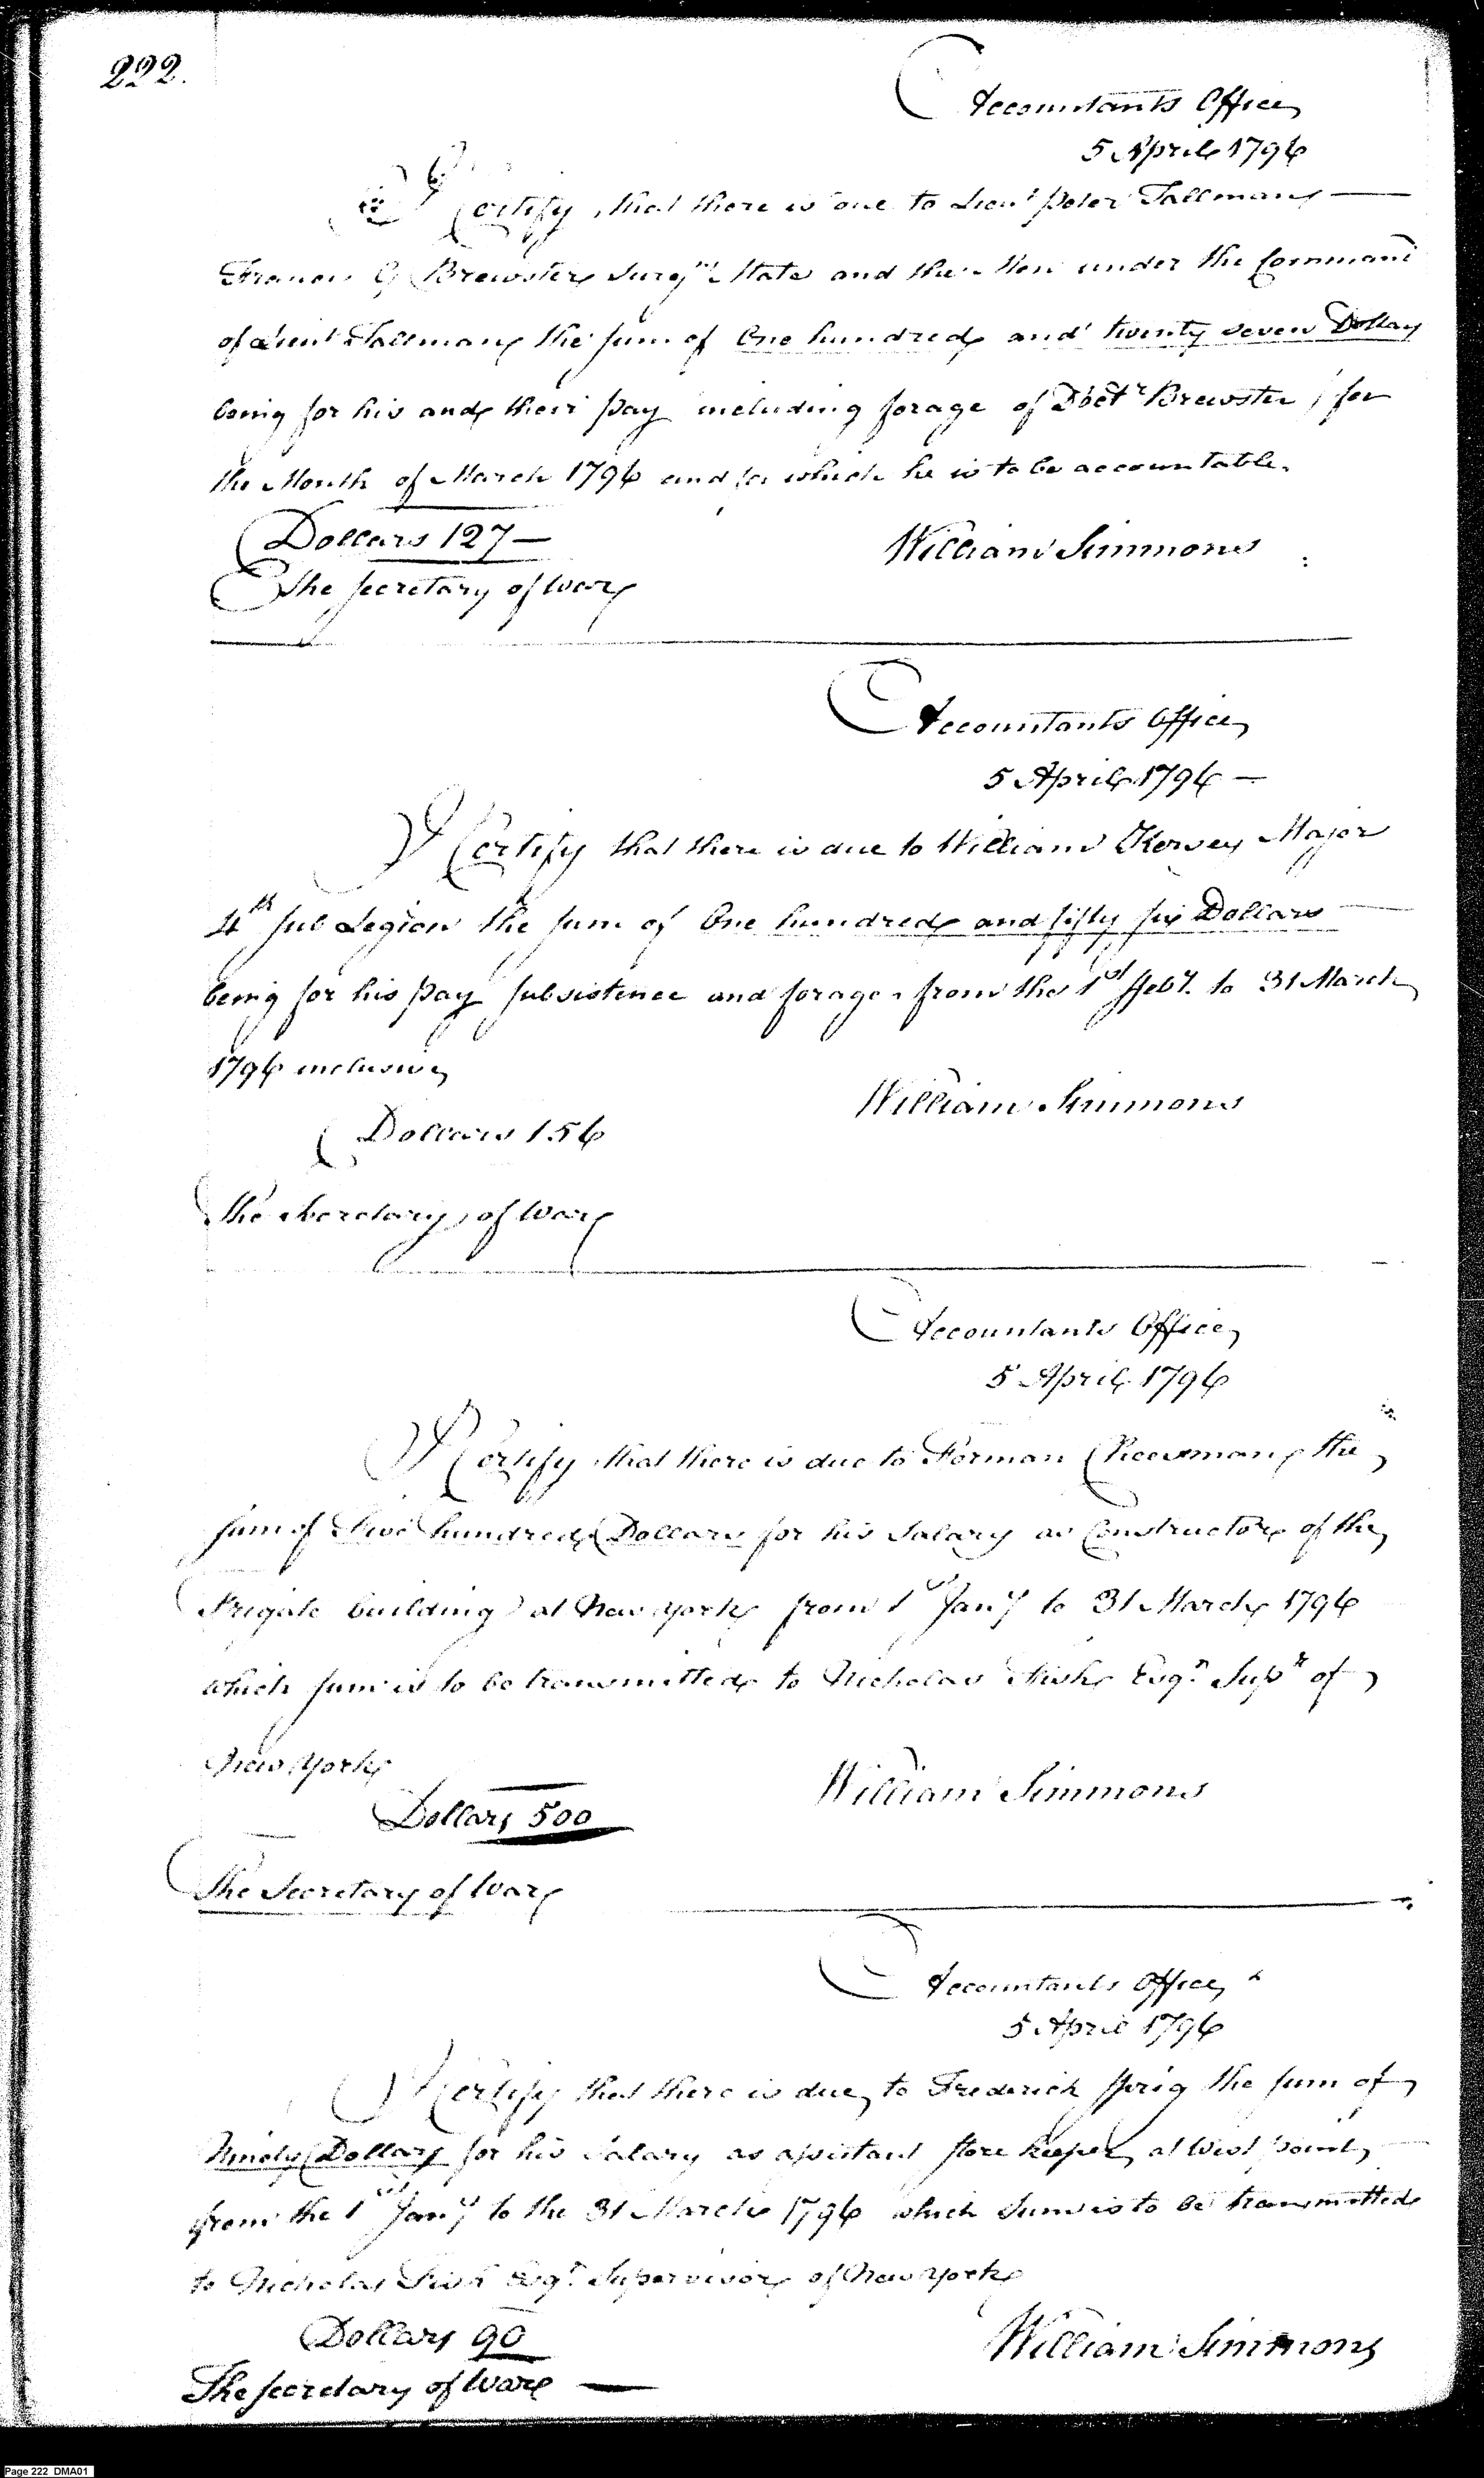 222.
Accountants Office
5 April 1796
I Certify that there is due to Lieut Peter Tallman
Francis G Brewster Surgns Mate and the Men under the Command
of Lieut Tallman the sum of One hundred and twenty seven Dollars
being for his and their pay including forage of Doctr Brewster, for
the Month of March 1796 and for which he is to be accountable.
Dollars 127 —
William Simmons
The Secretary of War
Accountants Office
5 April 1796 —
I Certify that there is due to William Kersey Major
4th Sub Legion the sum of One hundred and fifty six Dollars
being for his pay subsistence and forage from the 1st Feby. to 31 March
1796 inclusive
William Simmons
Dollars 156
The Secretary of War
Accountants Office
5 April 1796
I Certify that there is due to Forman Cheesman the
sum of five hundred Dollars for his Salary as Constructor of the
Frigate building at New York from 1st Jany to 31 March 1796
which sum is to be transmitted to Nicholas Fish Esqr. Supr of
New York
William Simmons
Dollars 500
The Secretary of War
Accountants Office
5 April 1796
I Certify that there is due to Frederick Sprig the sum of
Ninety Dollars for his Salary as assistant store keeper at West point
from the 1st Jany to the 31 March 1796 which sum is to be transmitted
to Nicholas Fish Esqr. Supervisor of New York
Dollars 90
William Simmons
The Secretary of War —
Page 222 DMA01